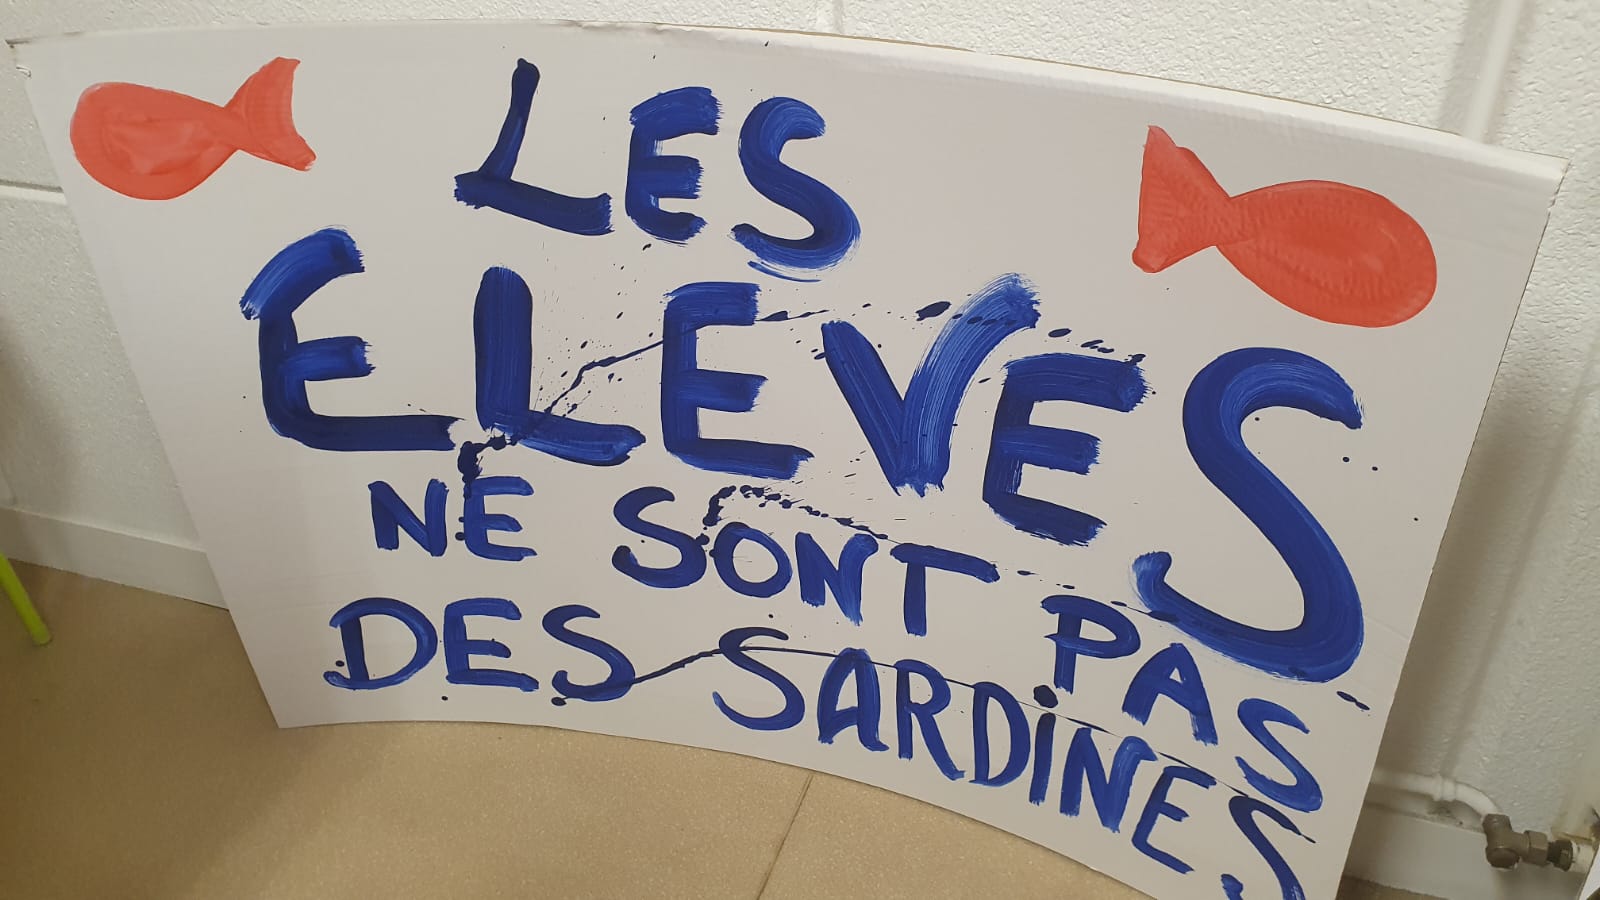 LES
ELEVES
NE SONT PAS
DES SARDiNES